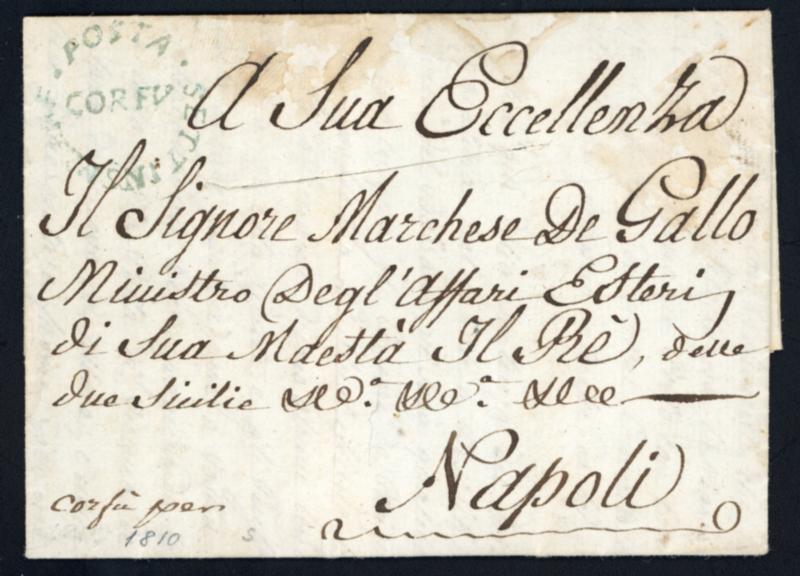 POSTA
CORFU
SETTINS
A Sua Eccellenza
Il Signore Marchese De Gallo
Ministro Degl'Affari Esteri,
di Sua Maestà Il Rè, delle
due Sicilie &a. &a. &ce
Napoli
corfù per
1810 S